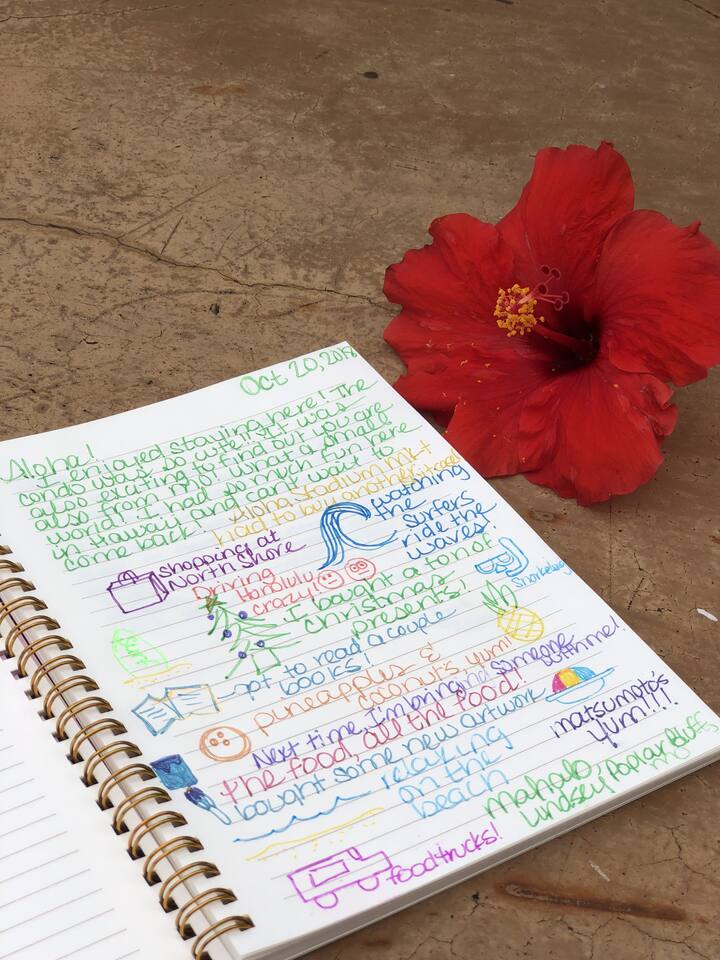 Oct 20, 2018
Aloha!
I enjoyed staying here! The
condo was so cute. It was
also exciting to find out you are
also from MO! What a small
world! I had so much fun here
in Hawaii and can't wait to
come back!
Aloha Stadium Mkt
had to buy another
shopping at
North Shore
watching
the
surfers
ride the
waves!
Driving
Honolulu
crazy!
I bought a ton of
Christmas
presents!
Snorkeling
got to read a couple
books!
pineapples &
coconuts yum!
Next time, I'm bringing someone with me!
The food, all the food!
bought some new artwork
matsumoto's
yum!!!
relaxing
on the
beach
Mahalo
Lindsey, Poplar Bluff,
MO
food trucks!